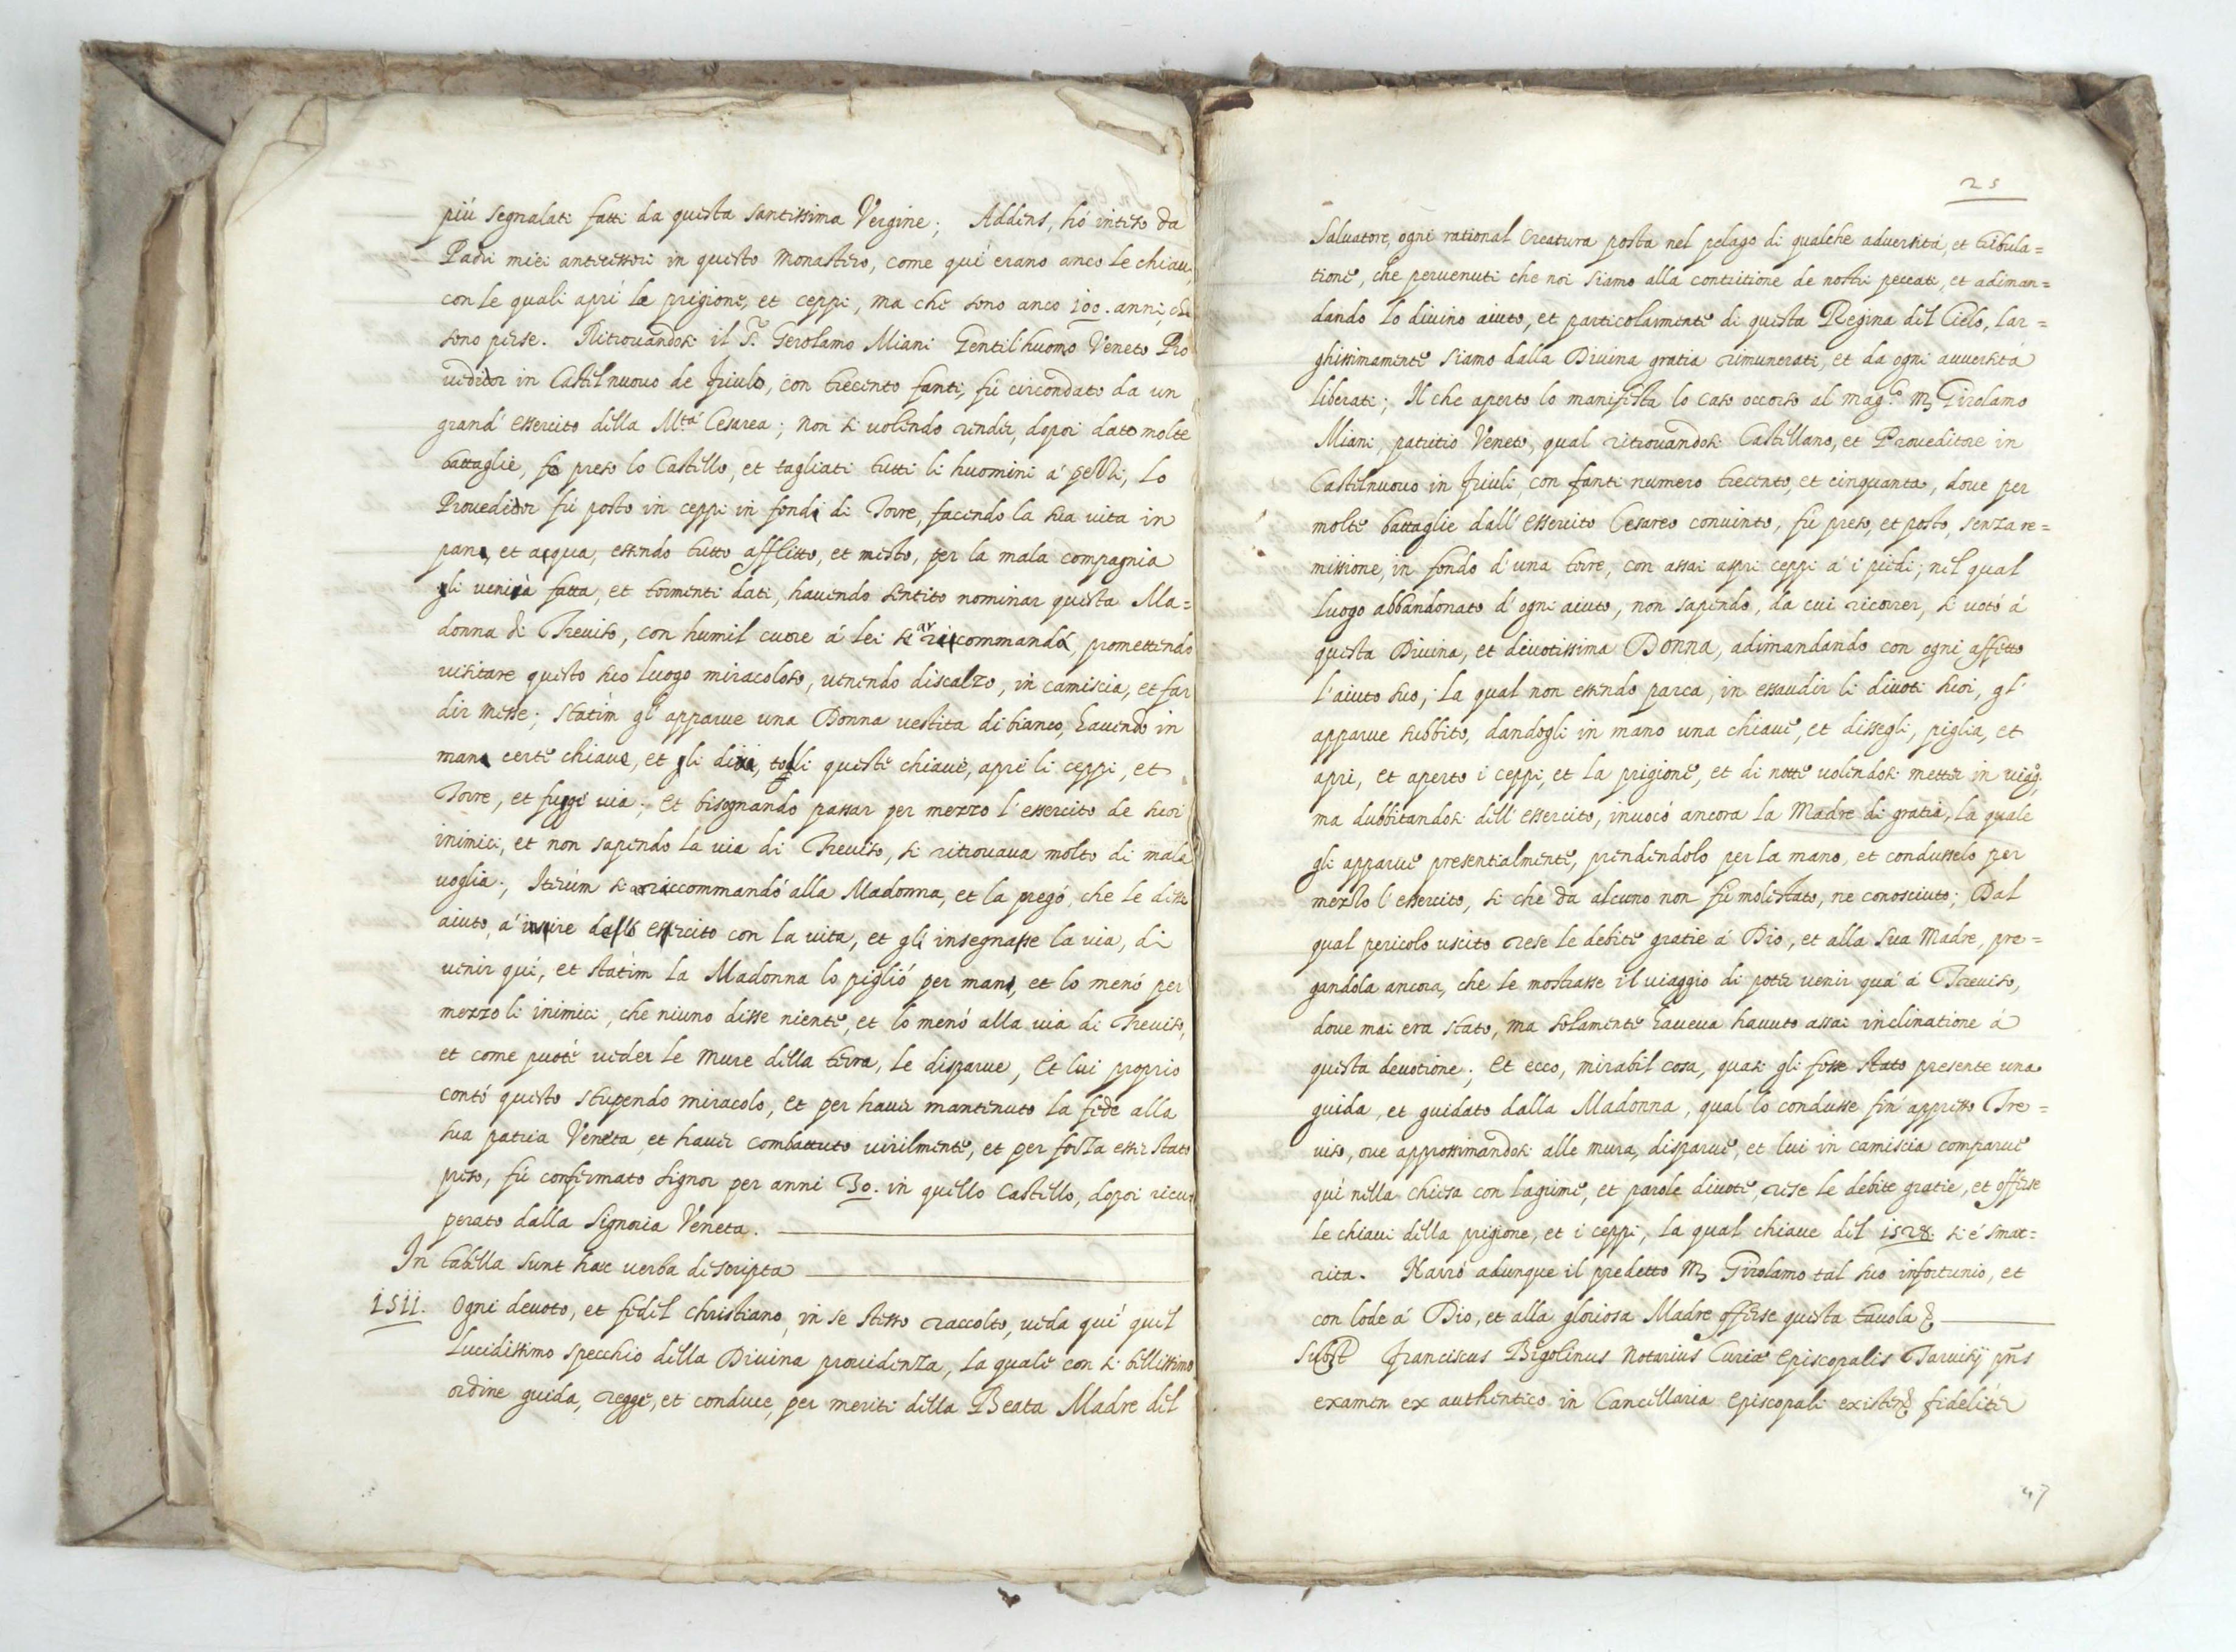 più segnalati fatti da questa santissima Vergine; Addens, hò inteso da
Padri miei antecessori in questo Monastero, come quì erano anco le chiavi,
con le quali aprì le prigione, et ceppi, ma che sono anco 100. anni, che
sono perse. Ritrovandosi il S.r Gerolamo Miani Gentil'huomo Veneto Pro
veditor in Castelnuovo de Friulo, con trecento fanti, fù circondato da un
grand' essercito della M.tà Cesarea; non si volendo render, dopoi dato molte
battaglie, fo preso lo Castello, et tagliati tutti li huomini à pezzi, Lo
Proveditor fù posto in ceppi in fondi di Torre, facendo la sua vita in
pane, et acqua, essendo tutto afflitto, et mesto, per la mala compagnia
gli veniva fatta, et tormenti dati, havendo sentito nominar questa Ma=
donna de Treviso, con humil cuore à lei si commandò, promettendo
visitare questo suo luogo miracoloso, venendo discalzo, in camiscia, et far
dir messe; statìm gl'apparve una Donna vestita di bianco, havendo in
mano certe chiave, et gli dixe, togli queste chiave, apri li ceppi, et
Torre, et fuggi via; et bisognando passar per mezzo l'essercito de suoi
inimici, et non sapendo la via di Treviso, si ritrovava molto di mala
voglia; Iterùm si arriccommandò alla Madonna, et la pregò, che le desse
aiuto, à essercito con la vita, et gli insegnasse la via, di
venir quì, et statìm la Madonna lo pigliò per mano, et lo menò per
mezzo li inimici, che niuno disse niente, et lo menò alla via di Treviso,
et come puotè veder le mure della terra, le disparve, Et lui proprio
contò questo stupendo miracolo, et per haver mantenuto la fede alla
sua patria Veneta, et haver combattuto virilmente, et per forza esser stato
preso, fù confirmato signor per anni 30. in quello Castello, dopoi recu
perato dalla Signoria Veneta.
In tabella sunt haec verba descripta
1511. Ogni devoto, et fedel Christiano, in se stesso raccolto, veda quì quel
lucidissimo specchio della Divina providenza, la quale con sì bellissimo
ordine guida, regge, et conduce, per meriti della Beata Madre del
25
Salvatore, ogni rational creatura posta nel pelago di qualche adversità, et tribula=
tione, che pervenuti che noi siamo alla contritione de nostri peccati, et adiman=
dando lo divino aiuto, et particolarmente di questa Regina del Cielo, lar=
ghissimamente siamo dalla Divina gratia rimunerati, et da ogni avversità
liberati; Il che aperto lo manifesta lo caso occorso al mag.co M. Girolamo
Miani, patritio Veneto, qual ritrovandosi Castellano, et Proveditore in
Castelnuovo in Friuli, con fanti numero trecento, et cinquanta, dove per
molte battaglie dall' essercito Cesareo convinto, fù preso, et posto, senza re=
missione, in fondo d'una torre, con assai aspri ceppi à i piedi; nel qual
luogo abbandonato d'ogni aiuto, non sapendo, da cui ricorrer, si votò à
questa Divina, et devotissima Donna, adimandando con ogni affetto
l'aiuto suo; la qual non essendo parca, in essaudir li devoti suoi, gl'
apparve subbito, dandogli in mano una chiave, et dissegli, piglia, et
apri, et aperto i ceppi, et la prigione, et di notte volendosi metter in viag.o
ma dubbitandosi dell'essercito, invocò ancora la Madre di gratia, la quale
gli apparve presentialmente, prendendolo per la mano, et condusselo per
mezzo l'essercito, si che da alcuno non fù molestato, ne conosciuto; Dal
qual pericolo uscito rese le debite gratie à Dio, et alla Sua Madre, pre=
gandola ancora, che le mostrasse il viaggio di poter venir quà à Treviso,
dove mai era stato, ma solamente haveva havuto assai inclinatione à
questa devotione; Et ecco, mirabil cosa, quasi gli fosse stato presente una
guida, et guidato dalla Madonna, qual lo condusse fin'appresso Tre=
viso, ove approssimandosi alle mura, disparve, et lui in camiscia comparve
quì nella chiesa con lagrime, et parole devote, rese le debite gratie, et offerse
le chiavi della prigione, et i ceppi, la qual chiave del 1528. si è smar=
rita. Narrò adunque il predetto M. Girolamo tal suo infortunio, et
con lode à Dio, et alla gloriosa Madre offerse questa tavola &
Franciscus Bigolinus Notarius Curiae Episcopalis Tarvisij pñs
examen ex authentico in Cancellaria Episcopali existen. fideliter
47